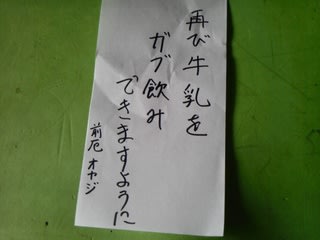 再び牛乳を
ガブ飲み
できますように
前厄オヤジ